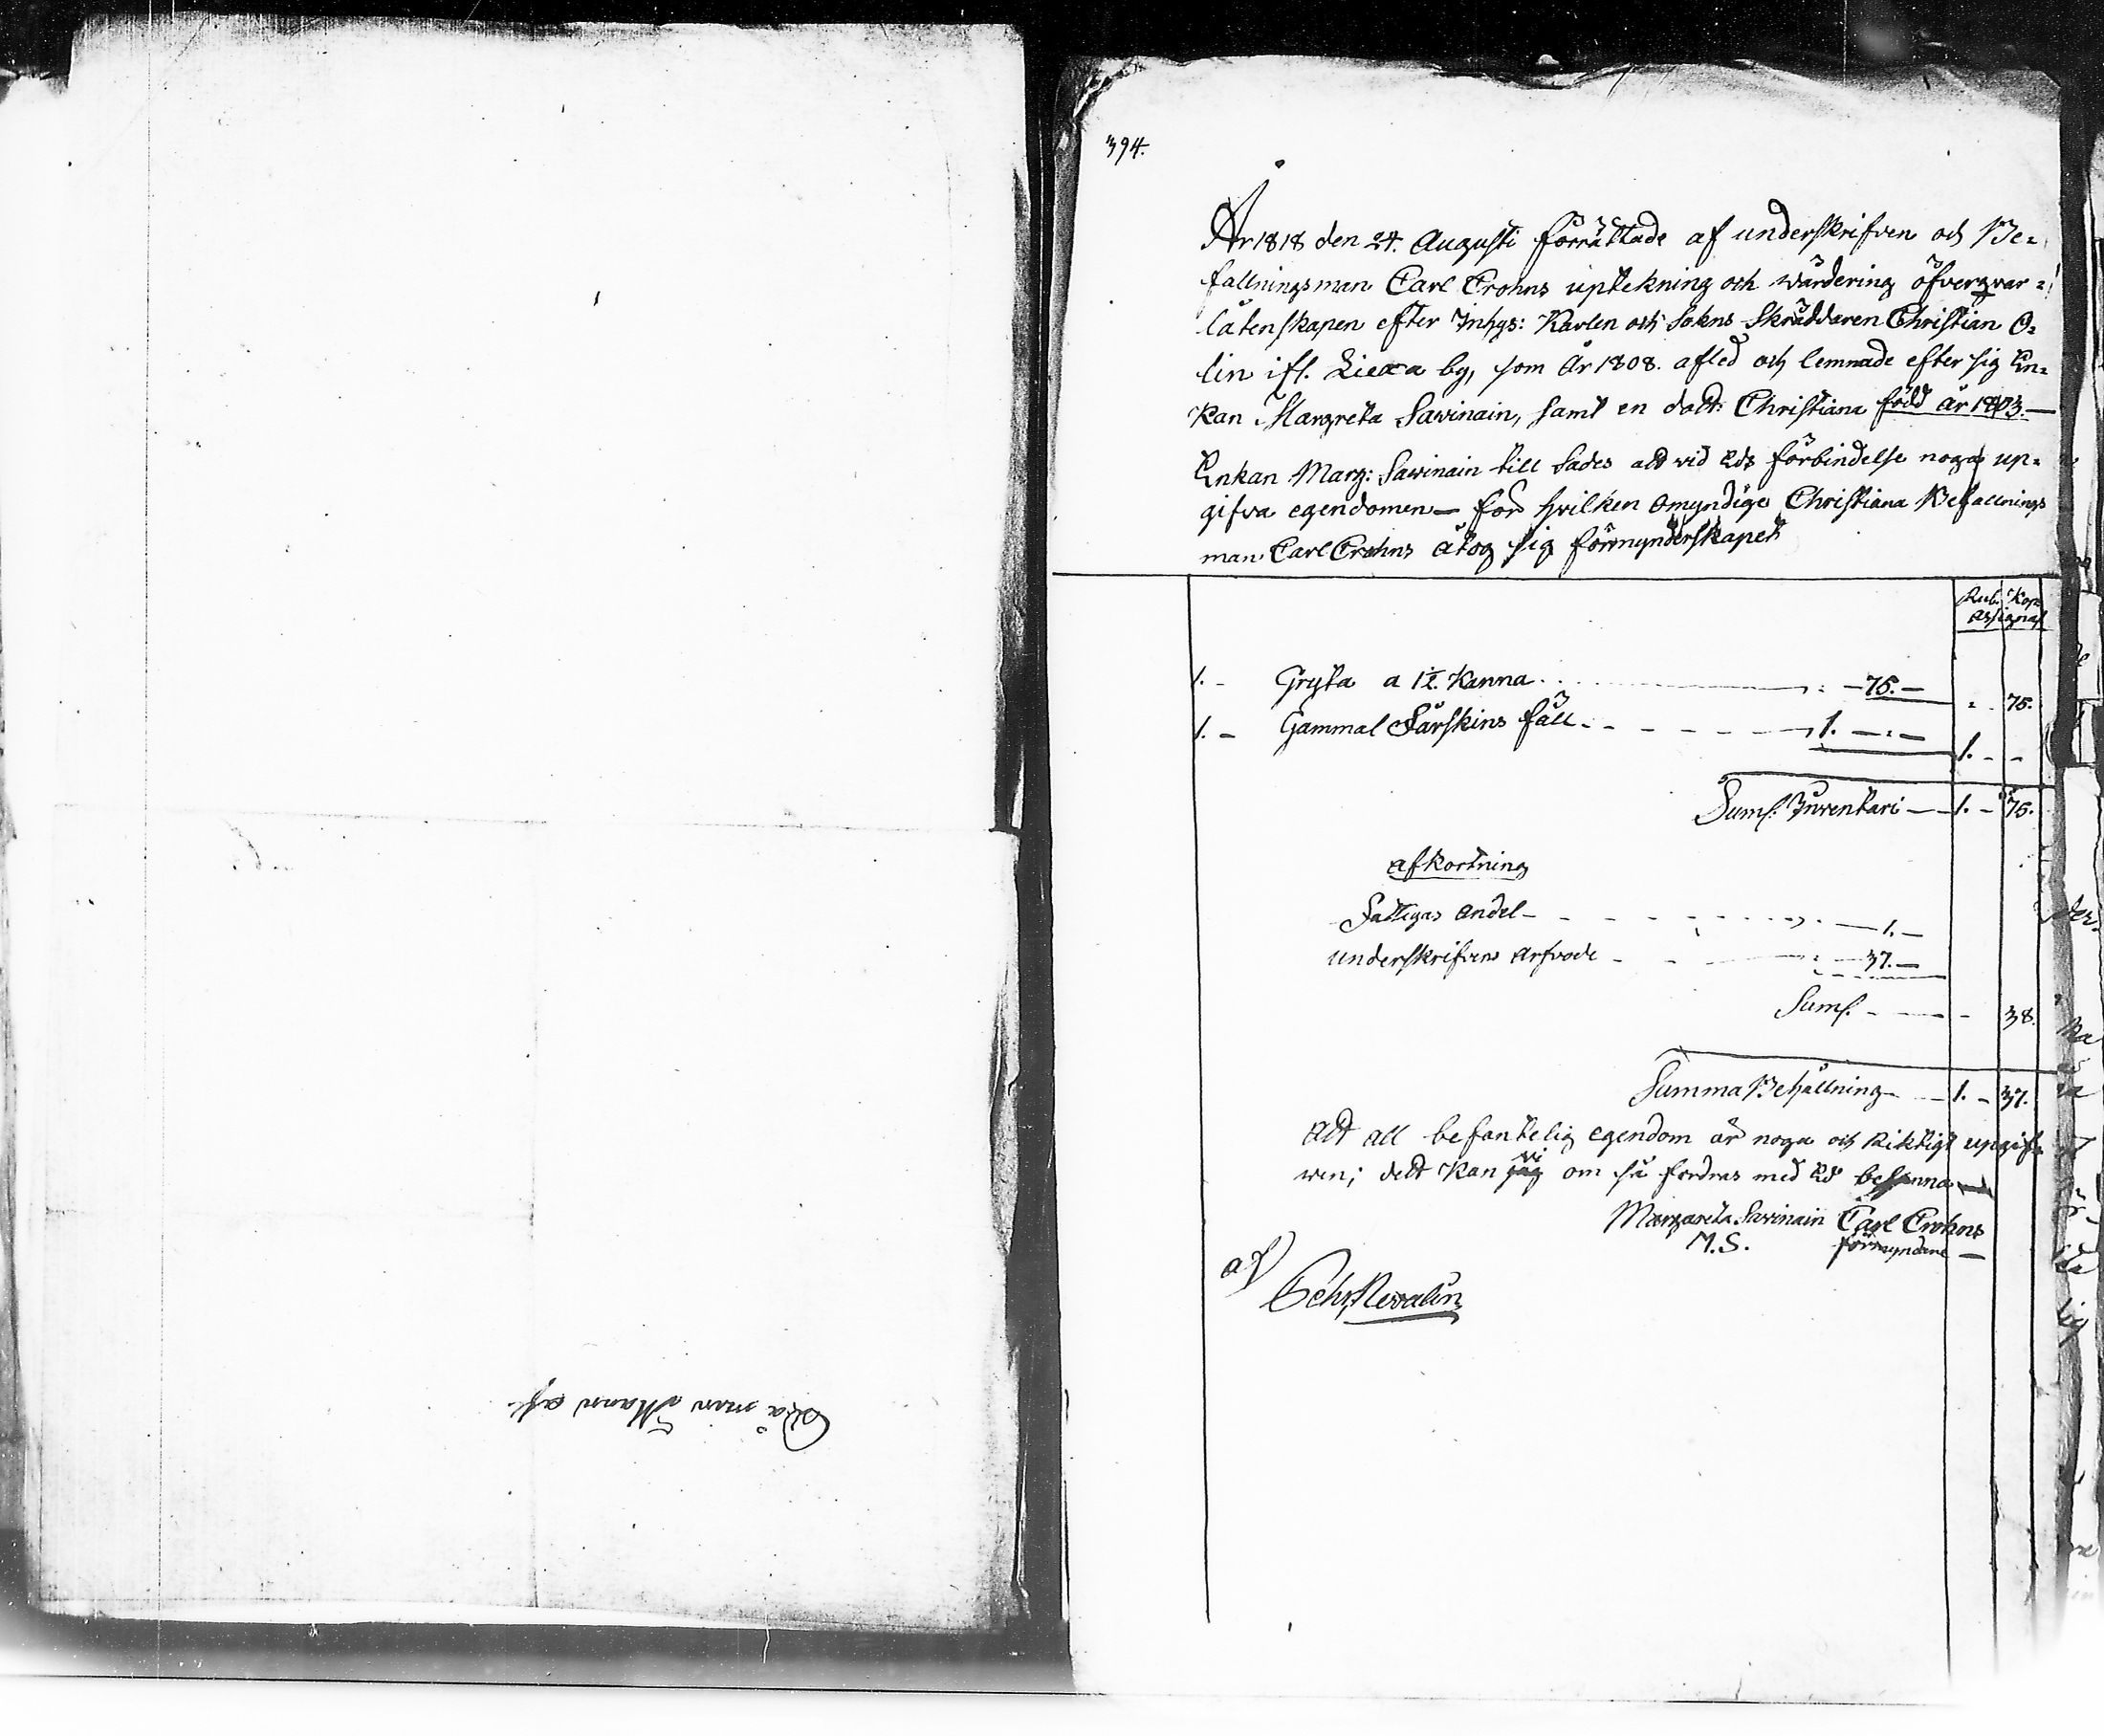 394.
År 1818 den 24. Augusti förrättade af underskrifven och Be=
fallningsman Carl Crohns uptekning och wärdering öfver qvar=
låtenskapen efter Inhgs: Karlen och Sokns Skräddaren Christian O=
lin ifr. Liexa by, som År 1808. afled och lemnade efter sig En=
kan Margreta Sawinain, samt en dott: Christiana född år 1803.—
Enkan Marg: Sawinain till sades att vid Eds förbindelse noga up=
gifva egendomen — för hvilken Omyndige Christiana Befallnings
man Carl Crohns åtog sig förmynderskapet
Rub. Kop.
Assignat
1. - Gryta a 1½. Kanna . . . — 75. — " 75.
1. - Gammal Fårskins fäll - - - 1. —:— 1. - -
Sum/: Inventari — 1. - 75.
afkortning
Fattigas Andel - - - — 1. —
underskrifvens Arfvode - - — 37. —
Sum/. - - - 38.
Summa Behållning - 1. - 37.
Att all befintelig egendom är noga och Riktigt upgif=
wen; dett Kan jag wi om så fordras med Ed besanna —
Margareta Sawinain Carl Crohns
M.S. förmyndare —
af
Min Mann